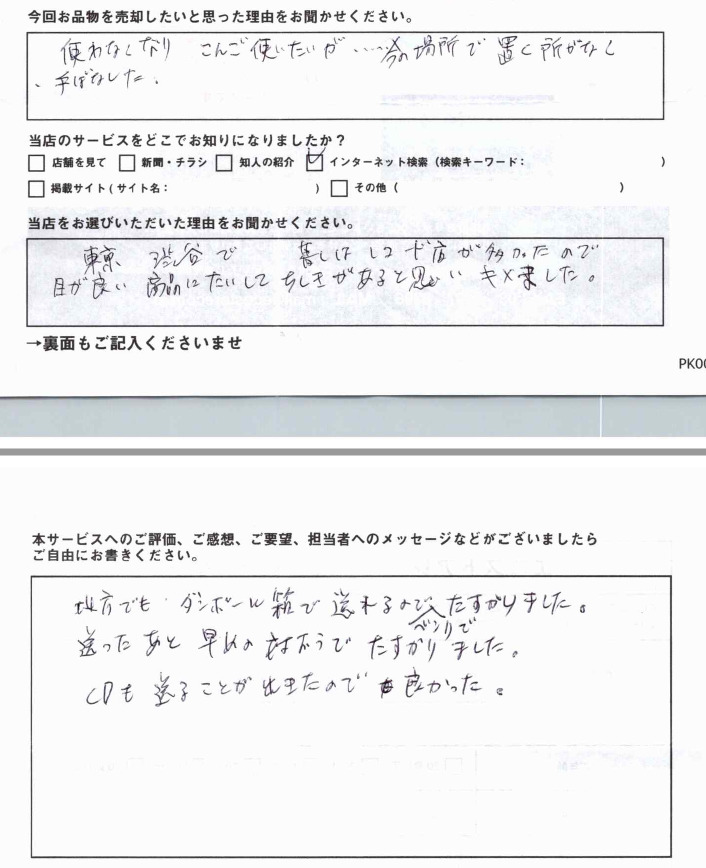 今回お品物を売却したいと思った理由をお聞かせください。
使わなくなり こんご使いたいが……今の場所で置く所がなく
、手ばなした.
当店のサービスをどこでお知りになりましたか？
□ 店舗を見て □ 新聞・チラシ □ 知人の紹介 ☑ インターネット検索（検索キーワード： ）
□ 掲載サイト（サイト名： ） □ その他（ ）
当店をお選びいただいた理由をお聞かせください。
東京 渋谷で 昔しは レコード店が多かったので
目が良い 商品にたいして ちしきがあると思い キメました。
→裏面もご記入くださいませ
PK00
本サービスへのご評価、ご感想、ご要望、担当者へのメッセージなどがございましたら
ご自由にお書きください。
地方でも ダンボール箱で 送れるので たすかりました。
ベンリで
送ったあと 早めの対おうで たすかりました。
CDも 送ることが出来たので 良かった。